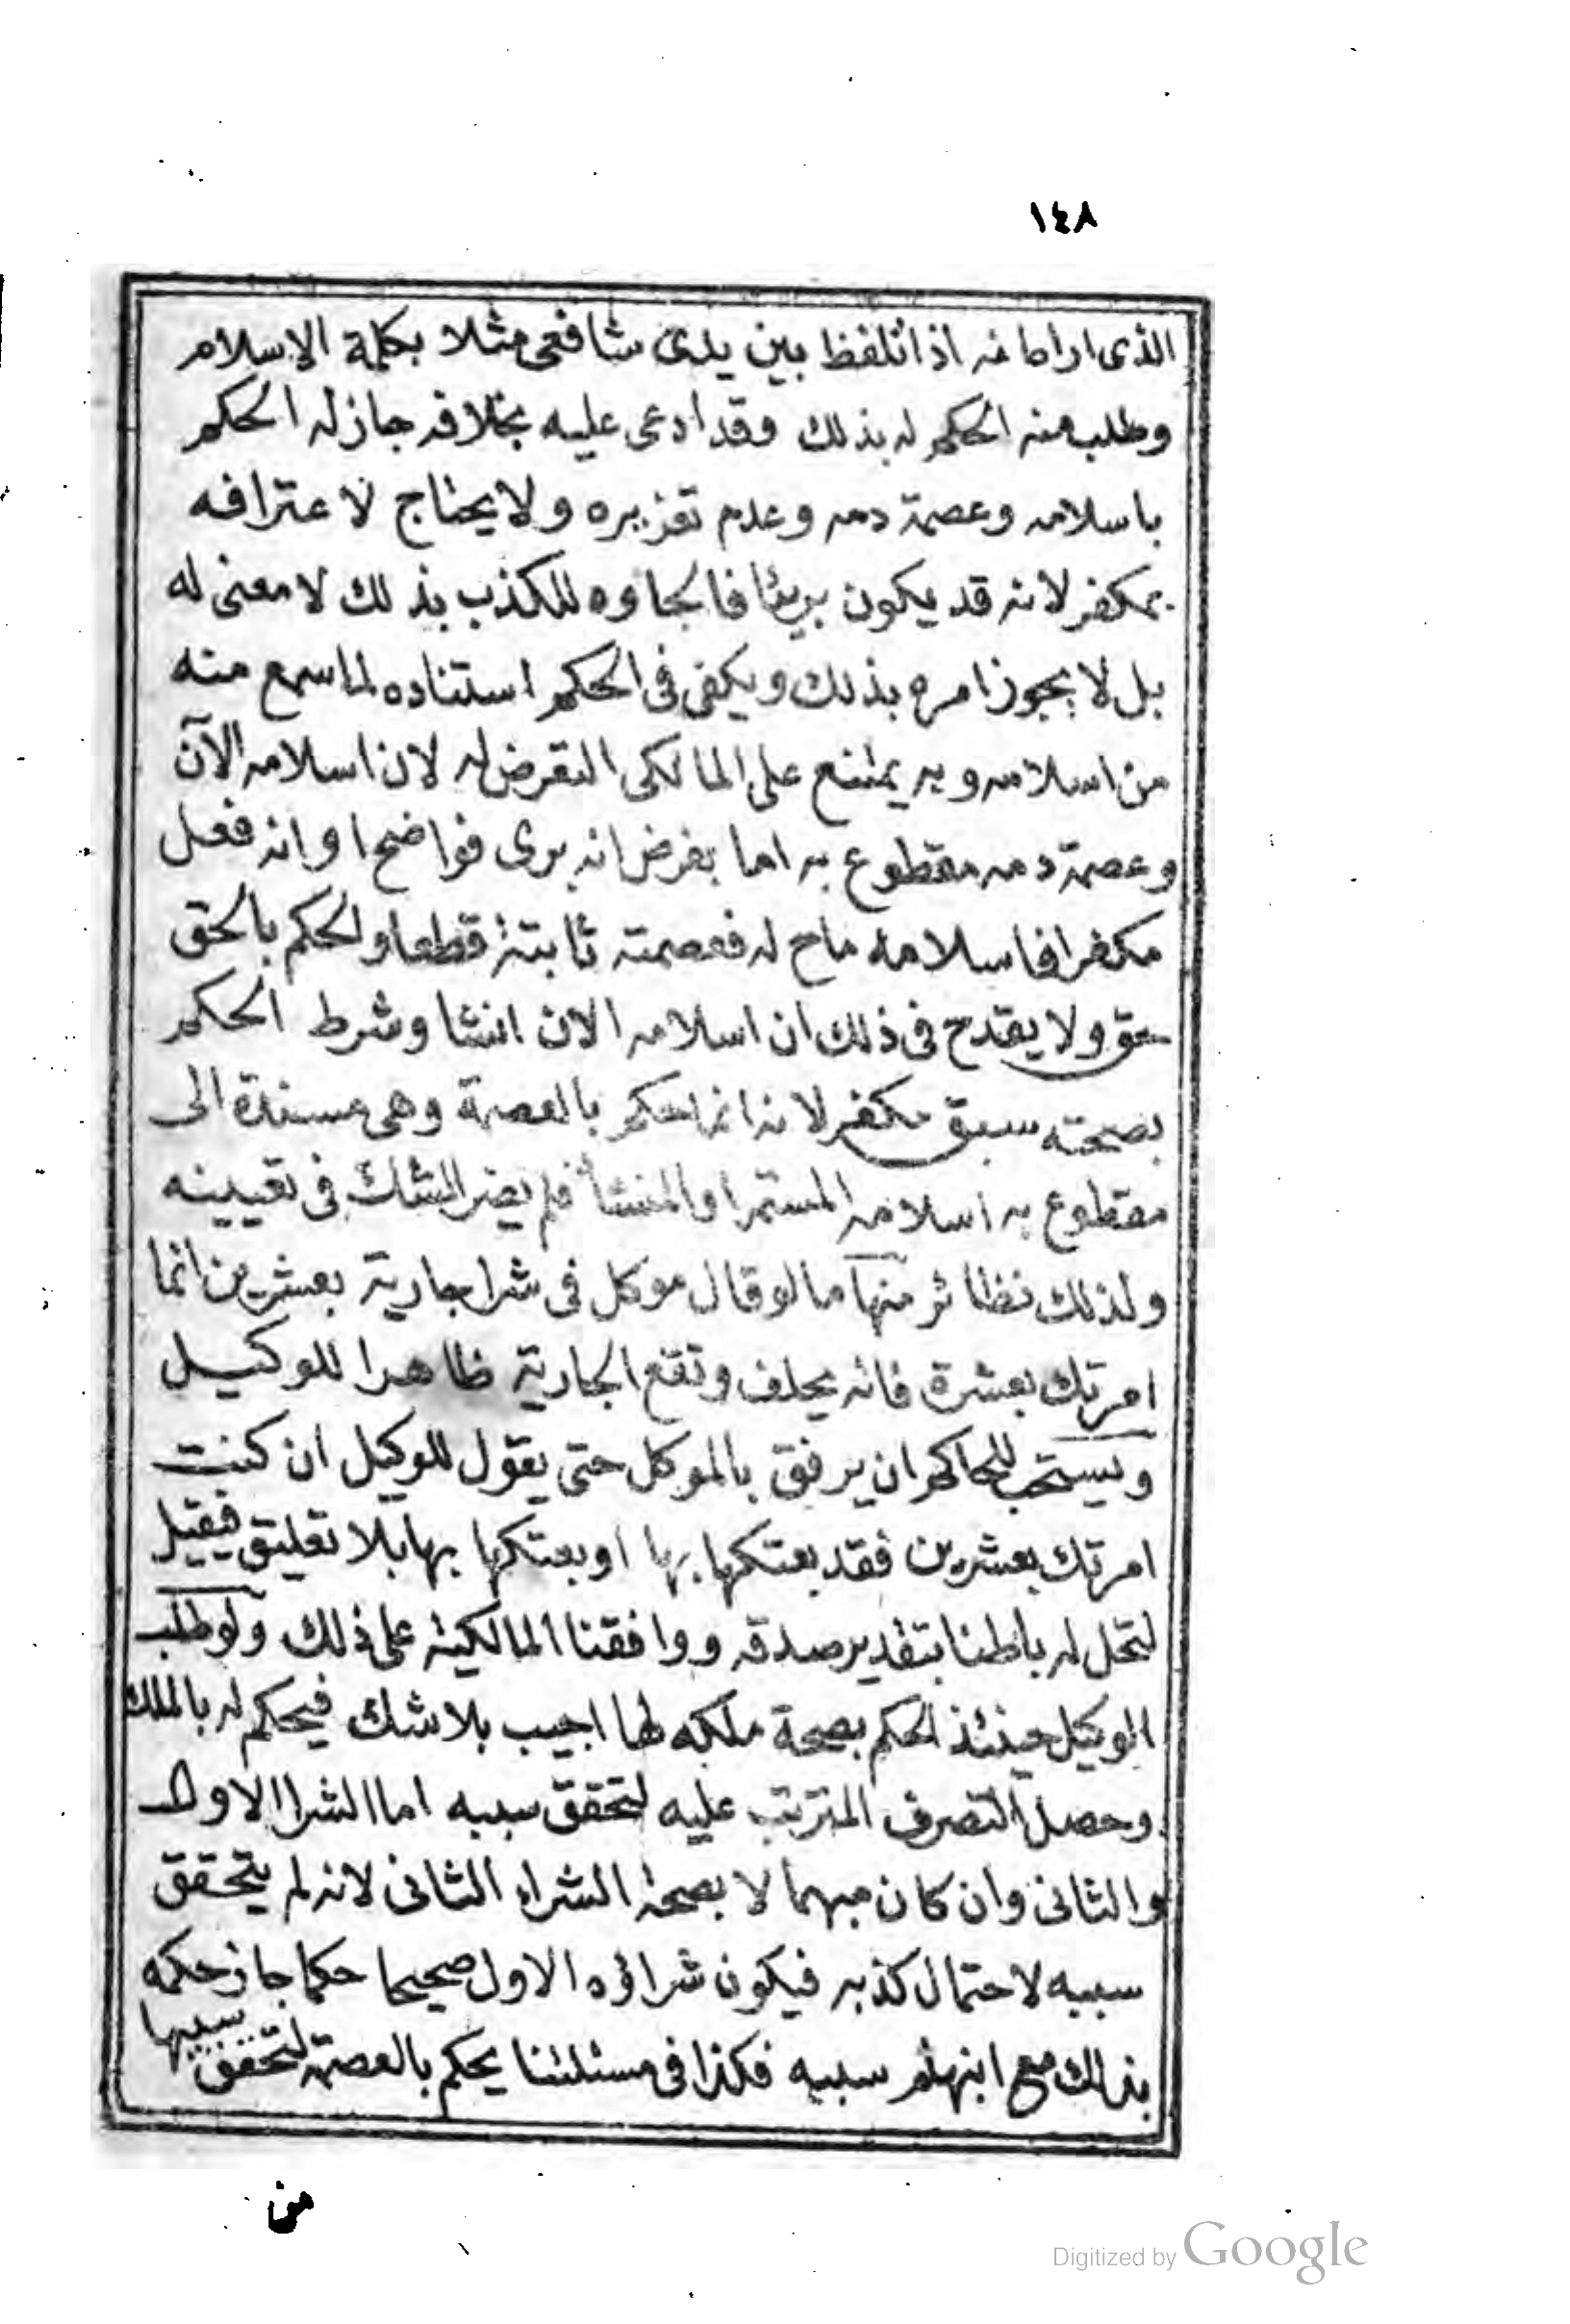 ١٤٨
الذى اراطا فه اذا تلفظ بين يدى شافعى مثلا بكلمة الاسلام
وطلب منه الحكم له بذلك وقد ادعى عليه بخلافه جاز له الحكم
باسلامه وعصمة دمه وعدم تعزيره ولا يحتاج لاعترافه
بمكفر لانه قد يكون بريئا فالجاوه للكذب بذلك لا معنى له
بل لا يجوز امره بذلك ويكفى فى الحكم استناده لما سمع منه
من اسلامه وبه يمتنع على المالكى التعرض له لان اسلامه الآن
وعصمة دمه مقطوع به اما بفرض انه برى فواضح او انه فعل
مكفرا فاسلامه ماح له فعصمته ثابتة قطعا والحكم بالحق
حق ولا يقدح فى ذلك ان اسلامه الان انشا وشرط الحكم
بصحته سبق مكفر لانه انما حكم بالعصمة وهى مسندة الى
مقطوع به اسلامه المستمر او المنشأ فلم يضر الشك فى تعيينه
ولذلك نظائر منها ما لو قال موكل فى شرا جارية بعشرين انما
امرتك بعشرة فانه يحلف وتقع الجارية ظاهرا للوكيل
ويستحب للحاكم ان يرفق بالموكل حتى يقول للوكيل ان كنت
امرتك بعشرين فقد بعتكها بها او بعتكها بها بلا تعليق فيقبل
لتحل له باطنا بتقدير صدقه ووافقنا المالكية على ذلك ولو طلب
الوكيل حينئذ الحكم بصحة ملكه لها اجيب بلا شك فيحكم له بالملك
وحصل التصرف المترتب عليه لتحقق سببه اما الشرا الاول
والثانى وان كان مبهما لا بصحة الشراء الثانى لانه لم يتحقق
سببه لاحتمال كذبه فيكون شراؤه الاول صحيحا حكما جاز حكمه
بذالك مع ابنهام سببه فكذا فى مسئلتنا يحكم بالعصمة لتحقق سببها
من
Digitized by Google